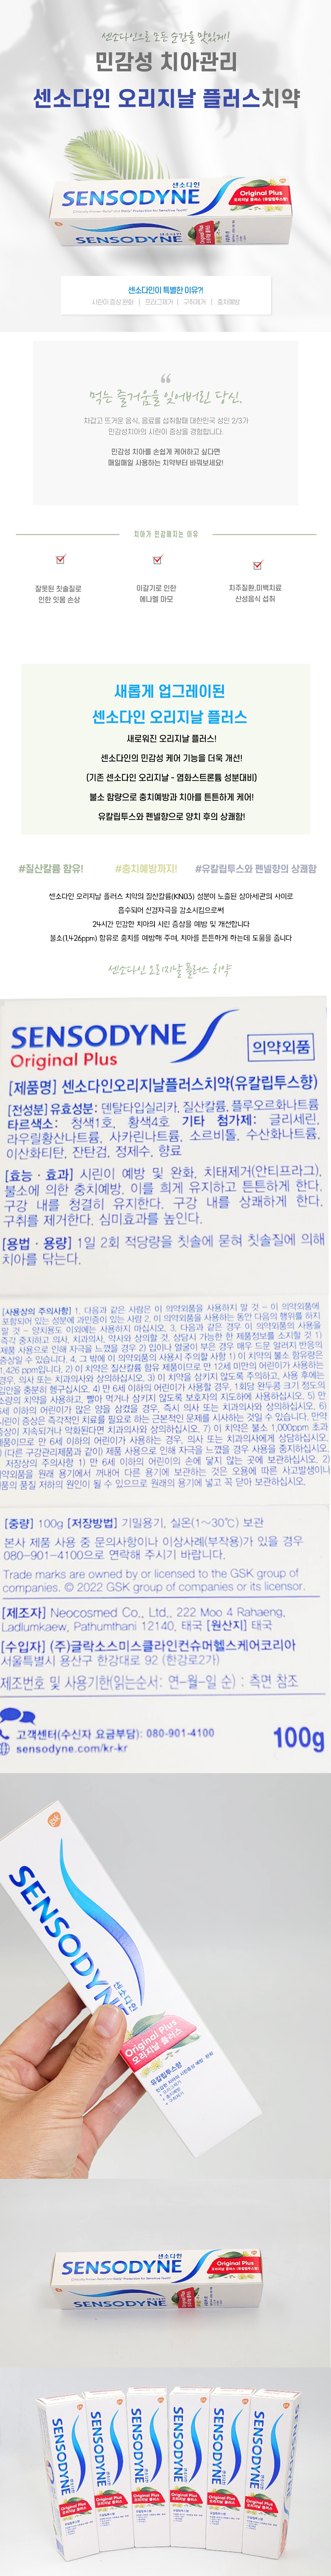 센소다인으로 모든 순간을 맛있게!
민감성 치아관리
센소다인 오리지날 플러스치약
센소다인
SENSODYNE
Original Plus
오리지날 플러스 (유칼립투스향)
SENSODYNE
센소다인이 특별한 이유?!
시린이 증상 완화 | 프라그제거 | 구취제거 | 충치예방
먹는 즐거움을 잃어버린 당신.
차갑고 뜨거운 음식, 음료를 섭취할때 대한민국 성인 2/3가
민감성치아의 시린이 증상을 경험합니다.
민감성 치아를 손쉽게 케어하고 싶다면
매일매일 사용하는 치약부터 바꿔보세요!
치아가 민감해지는 이유
잘못된 칫솔질로
인한 잇몸 손상
이갈기로 인한
에나멜 마모
치주질환,미백치료
산성음식 섭취
새롭게 업그레이된
센소다인 오리지날 플러스
새로워진 오리지날 플러스!
센소다인의 민감성 케어 기능을 더욱 개선!
(기존 센소다인 오리지날 - 염화스트론튬 성분대비)
불소 함량으로 충치예방과 치아를 튼튼하게 케어!
유칼립투스와 펜넬향으로 양치 후의 상쾌함!
#질산칼륨 함유!
#충치예방까지!
#유칼립투스와 펜넬향의 상쾌함
센소다인 오리지날 플러스 치약의 질산칼륨(KNO3) 성분이 노출된 상아세관의 사이로
흡수되어 신경자극을 감소시킴으로써
24시간 민감한 치아의 시린 증상을 예방 및 개선합니다
불소(1,426ppm) 함유로 충치를 예방해 주며, 치아를 튼튼하게 하는데 도움을 줍니다
센소다인 오리지날 플러스 치약
SENSODYNE
Original Plus
의약외품
[제품명] 센소다인오리지날플러스치약(유칼립투스향)
[전성분] 유효성분: 덴탈타입실리카, 질산칼륨, 플루오르화나트륨
타르색소: 청색1호, 황색4호 기타 첨가제: 글리세린,
라우릴황산나트륨, 사카린나트륨, 소르비톨, 수산화나트륨,
이산화티탄, 잔탄검, 정제수, 향료
[효능·효과] 시린이 예방 및 완화, 치태제거(안티프라그),
불소에 의한 충치예방, 이를 희게 유지하고 튼튼하게 한다.
구강 내를 청결히 유지한다. 구강 내를 상쾌하게 한다.
구취를 제거한다. 심미효과를 높인다.
[용법·용량] 1일 2회 적당량을 칫솔에 묻혀 칫솔질에 의해
치아를 닦는다.
[사용상의 주의사항] 1. 다음과 같은 사람은 이 의약외품을 사용하지 말 것 – 이 의약외품에
포함되어 있는 성분에 과민증이 있는 사람 2. 이 의약외품을 사용하는 동안 다음의 행위를 하지
말 것 – 양치용도 이외에는 사용하지 마십시오. 3. 다음과 같은 경우 이 의약외품의 사용을
즉각 중지하고 의사, 치과의사, 약사와 상의할 것. 상담시 가능한 한 제품정보를 소지할 것 1)
제품 사용으로 인해 자극을 느꼈을 경우 2) 입이나 얼굴이 부은 경우 매우 드문 알러지 반응의
증상일 수 있습니다. 4. 그 밖에 이 의약외품의 사용시 주의할 사항 1) 이 치약의 불소 함유량은
1,426 ppm입니다. 2) 이 치약은 질산칼륨 함유 제품이므로 만 12세 미만의 어린이가 사용하는
경우, 의사 또는 치과의사와 상의하십시오. 3) 이 치약을 삼키지 않도록 주의하고, 사용 후에는
입안을 충분히 헹구십시오. 4) 만 6세 이하의 어린이가 사용할 경우, 1회당 완두콩 크기 정도의
소량의 치약을 사용하고, 빨아 먹거나 삼키지 않도록 보호자의 지도하에 사용하십시오. 5) 만
6세 이하의 어린이가 많은 양을 삼켰을 경우, 즉시 의사 또는 치과의사와 상의하십시오. 6)
시린이 증상은 즉각적인 치료를 필요로 하는 근본적인 문제를 시사하는 것일 수 있습니다. 만약
증상이 지속되거나 악화된다면 치과의사와 상의하십시오. 7) 이 치약은 불소 1,000ppm 초과
제품이므로 만 6세 이하의 어린이가 사용하는 경우, 의사 또는 치과의사에게 상담하십시오.
8) (다른 구강관리제품과 같이) 제품 사용으로 인해 자극을 느꼈을 경우 사용을 중지하십시오.
저장상의 주의사항 1) 만 6세 이하의 어린이의 손에 닿지 않는 곳에 보관하십시오. 2)
의약외품을 원래 용기에서 꺼내어 다른 용기에 보관하는 것은 오용에 따른 사고발생이나
제품의 품질 저하의 원인이 될 수 있으므로 원래의 용기에 넣고 꼭 닫아 보관하십시오.
[중량] 100g [저장방법] 기밀용기, 실온(1~30℃) 보관
본사 제품 사용 중 문의사항이나 이상사례(부작용)가 있을 경우
080-901-4100으로 연락해 주시기 바랍니다.
Trade marks are owned by or licensed to the GSK group of
companies. © 2022 GSK group of companies or its licensor.
[제조자] Neocosmed Co., Ltd., 222 Moo 4 Rahaeng,
Ladlumkaew, Pathumthani 12140, 태국 [원산지] 태국
[수입자] (주)글락소스미스클라인컨슈머헬스케어코리아
서울특별시 용산구 한강대로 92 (한강로2가)
제조번호 및 사용기한(읽는순서: 연-월-일 순) : 측면 참조
고객센터(수신자 요금부담): 080-901-4100
sensodyne.com/kr-kr
100g
SENSODYNE
센소다인
Original Plus
오리지날 플러스
유칼립투스향
센소다인
SENSODYNE
Original Plus
SENSODYNE
SENSODYNE
SENSODYNE
SENSODYNE
SENSODYNE
SENSODYNE
SENSODYNE